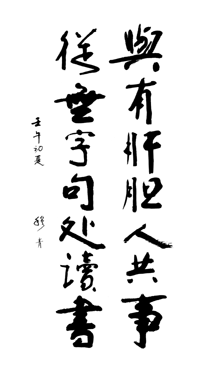 與有肝胆人共事
從無字句处讀書
壬午初夏
穆青